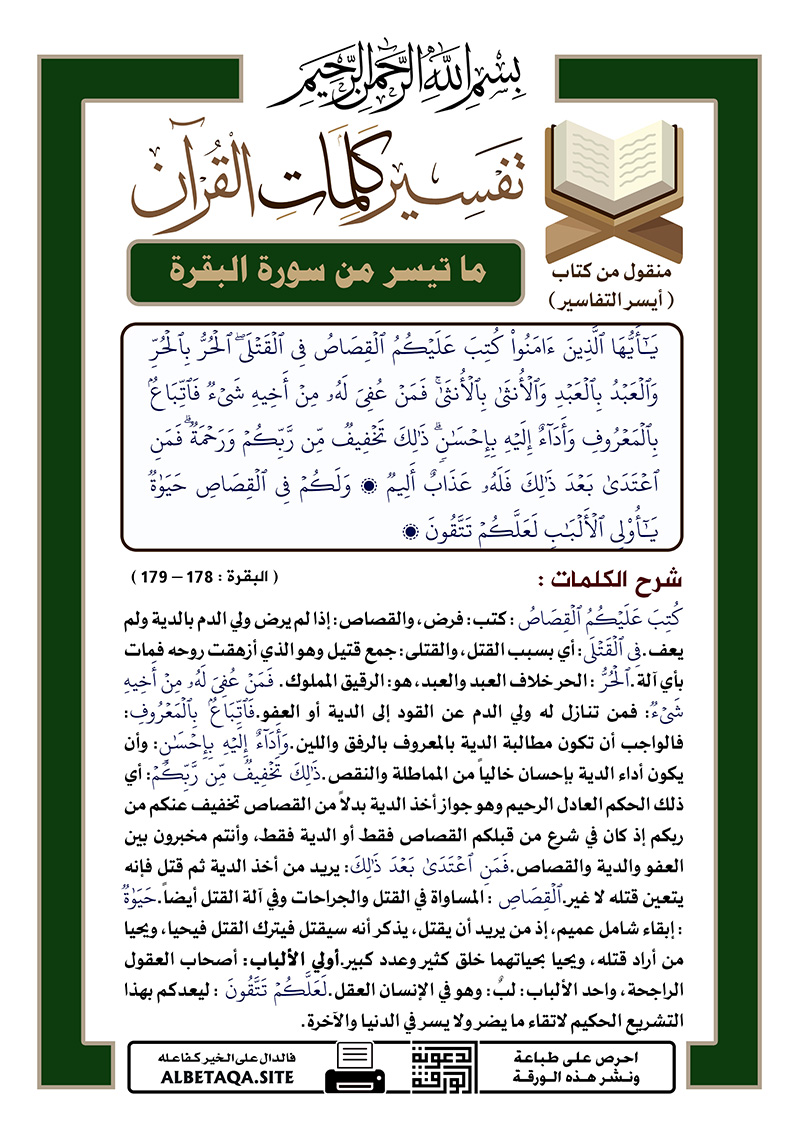 بِسْمِ اللَّهِ الرَّحْمَٰنِ الرَّحِيمِ
تَفْسِير كَلِمَاتِ الْقُرْآن
منقول من كتاب
( أيسر التفاسير )
ما تيسر من سورة البقرة
يَـٰٓأَيُّهَا ٱلَّذِينَ ءَامَنُوا۟ كُتِبَ عَلَيْكُمُ ٱلْقِصَاصُ فِى ٱلْقَتْلَى ۖ ٱلْحُرُّ بِٱلْحُرِّ
وَٱلْعَبْدُ بِٱلْعَبْدِ وَٱلْأُنثَىٰ بِٱلْأُنثَىٰ ۚ فَمَنْ عُفِىَ لَهُۥ مِنْ أَخِيهِ شَىْءٌ فَٱتِّبَاعٌۢ
بِٱلْمَعْرُوفِ وَأَدَآءٌ إِلَيْهِ بِإِحْسَـٰنٍ ۗ ذَٰلِكَ تَخْفِيفٌ مِّن رَّبِّكُمْ وَرَحْمَةٌ ۗ فَمَنِ
ٱعْتَدَىٰ بَعْدَ ذَٰلِكَ فَلَهُۥ عَذَابٌ أَلِيمٌ ۞ وَلَكُمْ فِى ٱلْقِصَاصِ حَيَوٰةٌ
يَـٰٓأُو۟لِى ٱلْأَلْبَـٰبِ لَعَلَّكُمْ تَتَّقُونَ ۞
شرح الكلمات :
( البقرة : 178 – 179 )
كُتِبَ عَلَيْكُمُ ٱلْقِصَاصُ : كتب: فرض، والقصاص: إذا لم يرض ولي الدم بالدية ولم
يعف. فِى ٱلْقَتْلَى: أي بسبب القتل، والقتلى: جمع قتيل وهو الذي أزهقت روحه فمات
بأي آلة. ٱلْحُرُّ : الحر خلاف العبد والعبد، هو: الرقيق المملوك. فَمَنْ عُفِىَ لَهُۥ مِنْ أَخِيهِ
شَىْءٌ: فمن تنازل له ولي الدم عن القود إلى الدية أو العفو. فَٱتِّبَاعٌۢ بِٱلْمَعْرُوفِ:
فالواجب أن تكون مطالبة الدية بالمعروف بالرفق واللين. وَأَدَآءٌ إِلَيْهِ بِإِحْسَـٰنٍ: وأن
يكون أداء الدية بإحسان خالياً من المماطلة والنقص. ذَٰلِكَ تَخْفِيفٌ مِّن رَّبِّكُمْ: أي
ذلك الحكم العادل الرحيم وهو جواز أخذ الدية بدلاً من القصاص تخفيف عنكم من
ربكم إذ كان في شرع من قبلكم القصاص فقط أو الدية فقط، وأنتم مخبرون بين
العفو والدية والقصاص. فَمَنِ ٱعْتَدَىٰ بَعْدَ ذَٰلِكَ: يريد من أخذ الدية ثم قتل فإنه
يتعين قتله لا غير. ٱلْقِصَاصِ : المساواة في القتل والجراحات وفي آلة القتل أيضاً. حَيَوٰةٌ
: إبقاء شامل عميم، إذ من يريد أن يقتل، يذكر أنه سيقتل فيترك القتل فيحيا، ويحيا
من أراد قتله، ويحيا بحياتهما خلق كثير وعدد كبير. أولي الألباب: أصحاب العقول
الراجحة، واحد الألباب: لبٌ: وهو في الإنسان العقل. لَعَلَّكُمْ تَتَّقُونَ : ليعدكم بهذا
التشريع الحكيم لاتقاء ما يضر ولا يسر في الدنيا والآخرة.
احرص على طباعة
ونشر هذه الورقة
الورقة الدعوية
فالدال على الخير كفاعله
ALBETAQA.SITE